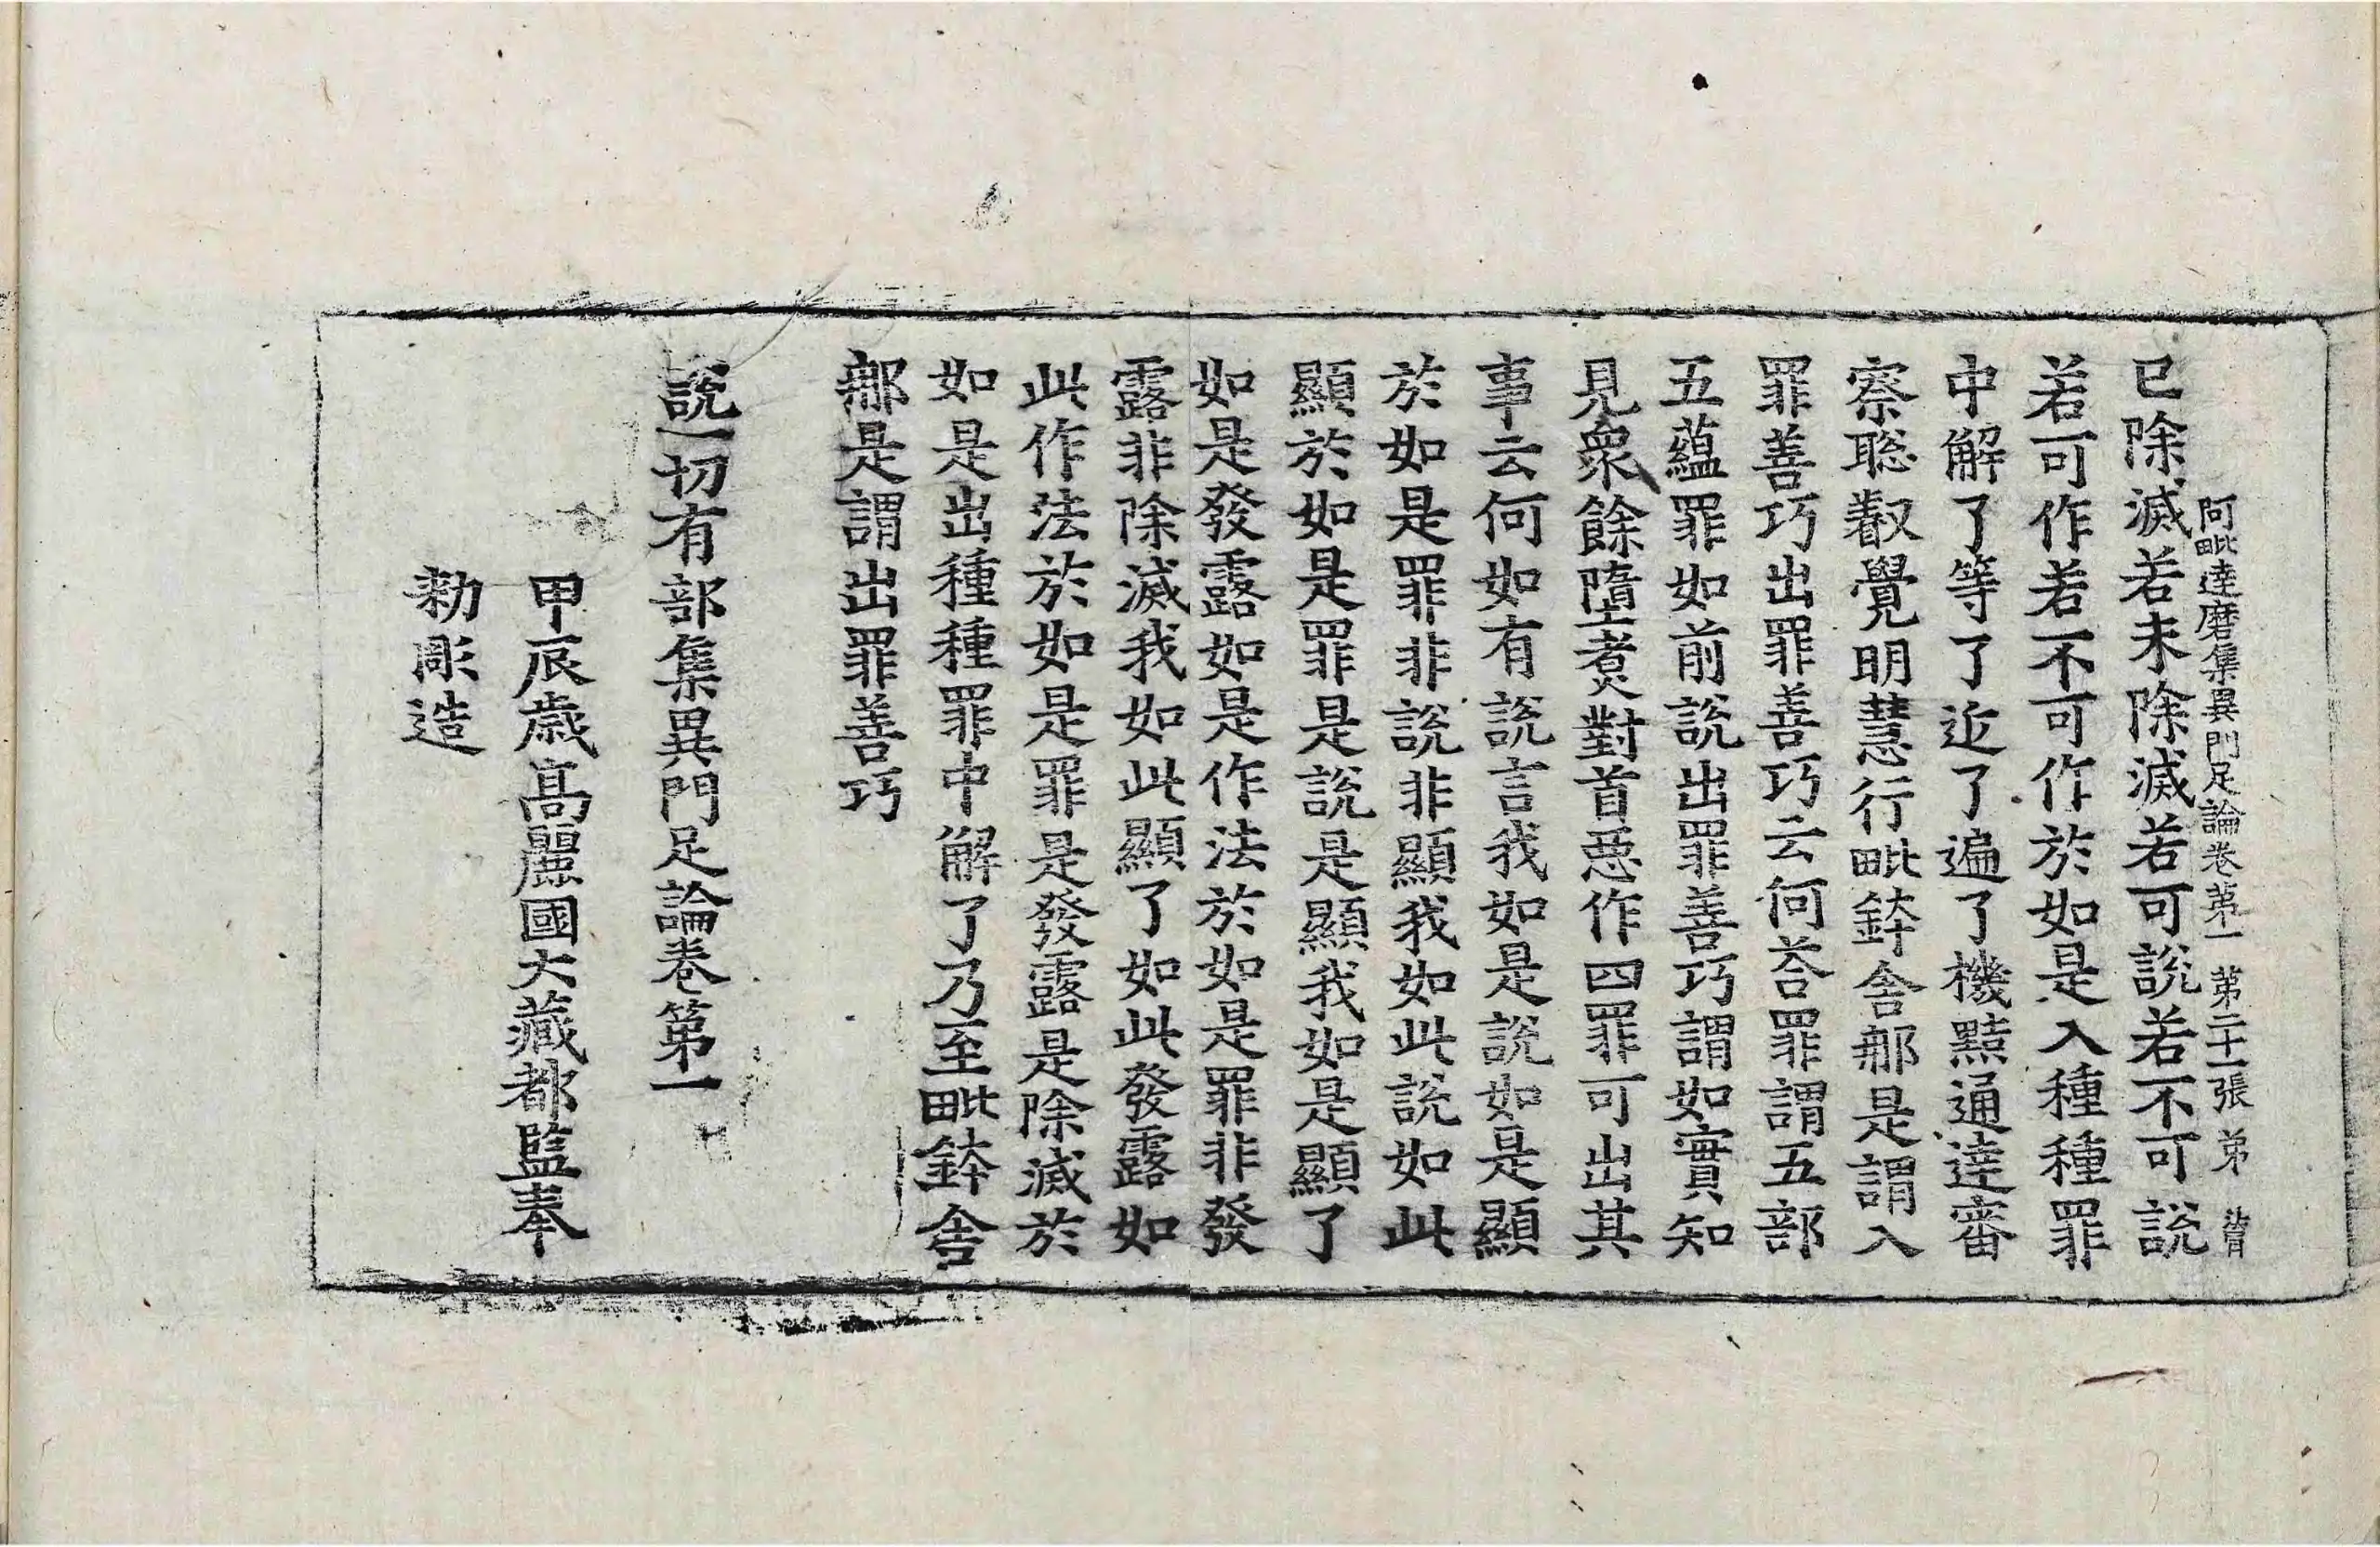 阿毗達磨集異門足論卷第一 第二十一張 弟
已除滅若未除滅若可說若不可說
若可作若不可作於如是入種種罪
中解了等了近了遍了機黠通達審
察聡叡覺明慧行毗鉢舍那是謂入
罪善巧出罪善巧云何荅罪謂五部
五蘊罪如前說出罪善巧謂如實知
見衆餘墮煑對首惡作四罪可出其
事云何如有說言我如是說如是顯
於如是罪非說非顯我如此說如此
顯於如是罪是說是顯我如是顯了
如是發露如是作法於如是罪非發
露非除滅我如此顯了如此發露如
此作法於如是罪是發露是除滅於
如是出種種罪中解了乃至毗鉢舍
那是謂出罪善巧
說一切有部集異門足論卷第一
甲辰歲高麗國大藏都監奉
勑彫造